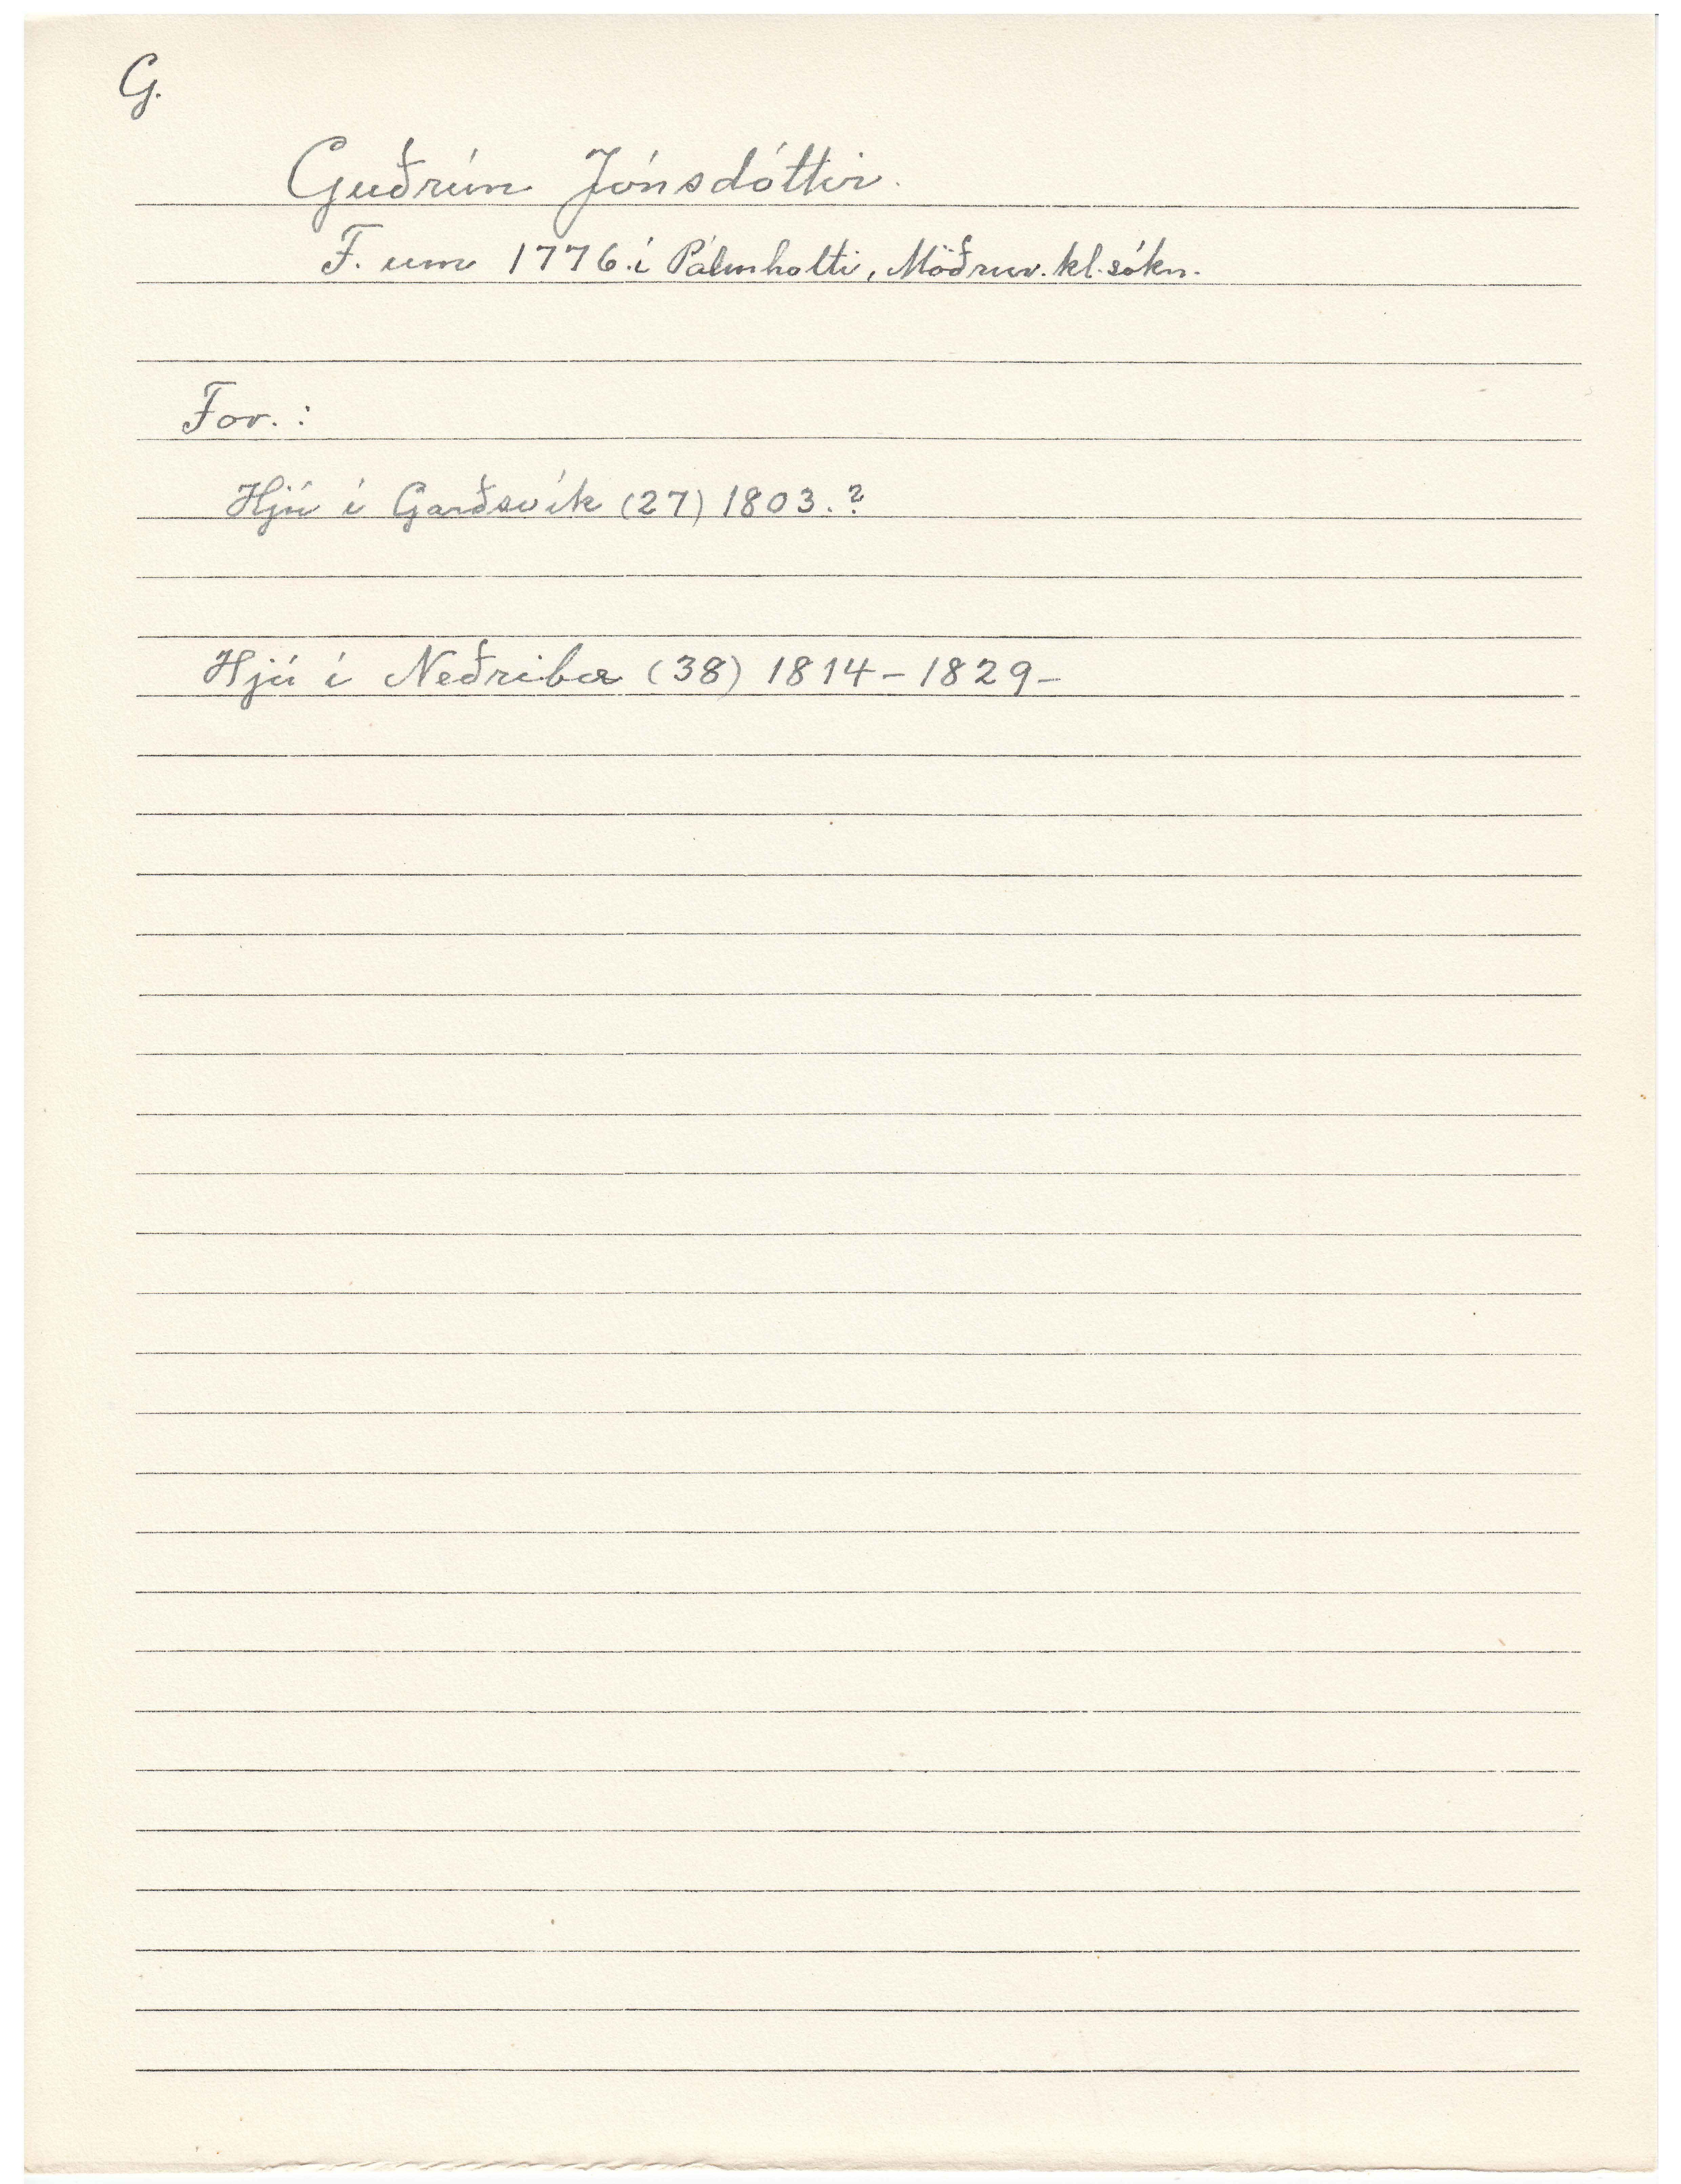 G.
Guðrún Jónsdóttir.
F. um 1776. í Pálmholti, Möðruv. kl. sókn.
For. :
Hjú í Garðsvík (27) 1803. ?
Hjú í Neðribæ (38) 1814 – 1829 –